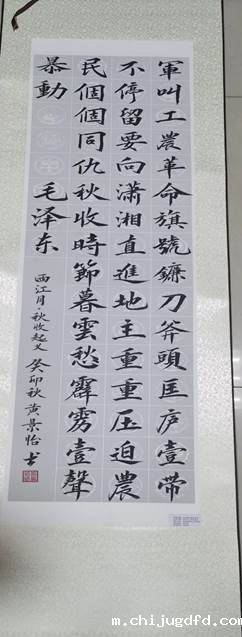 軍叫工農革命旗號鐮刀斧頭匡庐壹帶
不停留要向潇湘直進地主重重压迫農
民個個同仇秋收時節暮雲愁霹雳壹聲
暴動 毛泽东
西江月·秋收起义 癸卯秋黄景怡书
m.chijugdfd.com